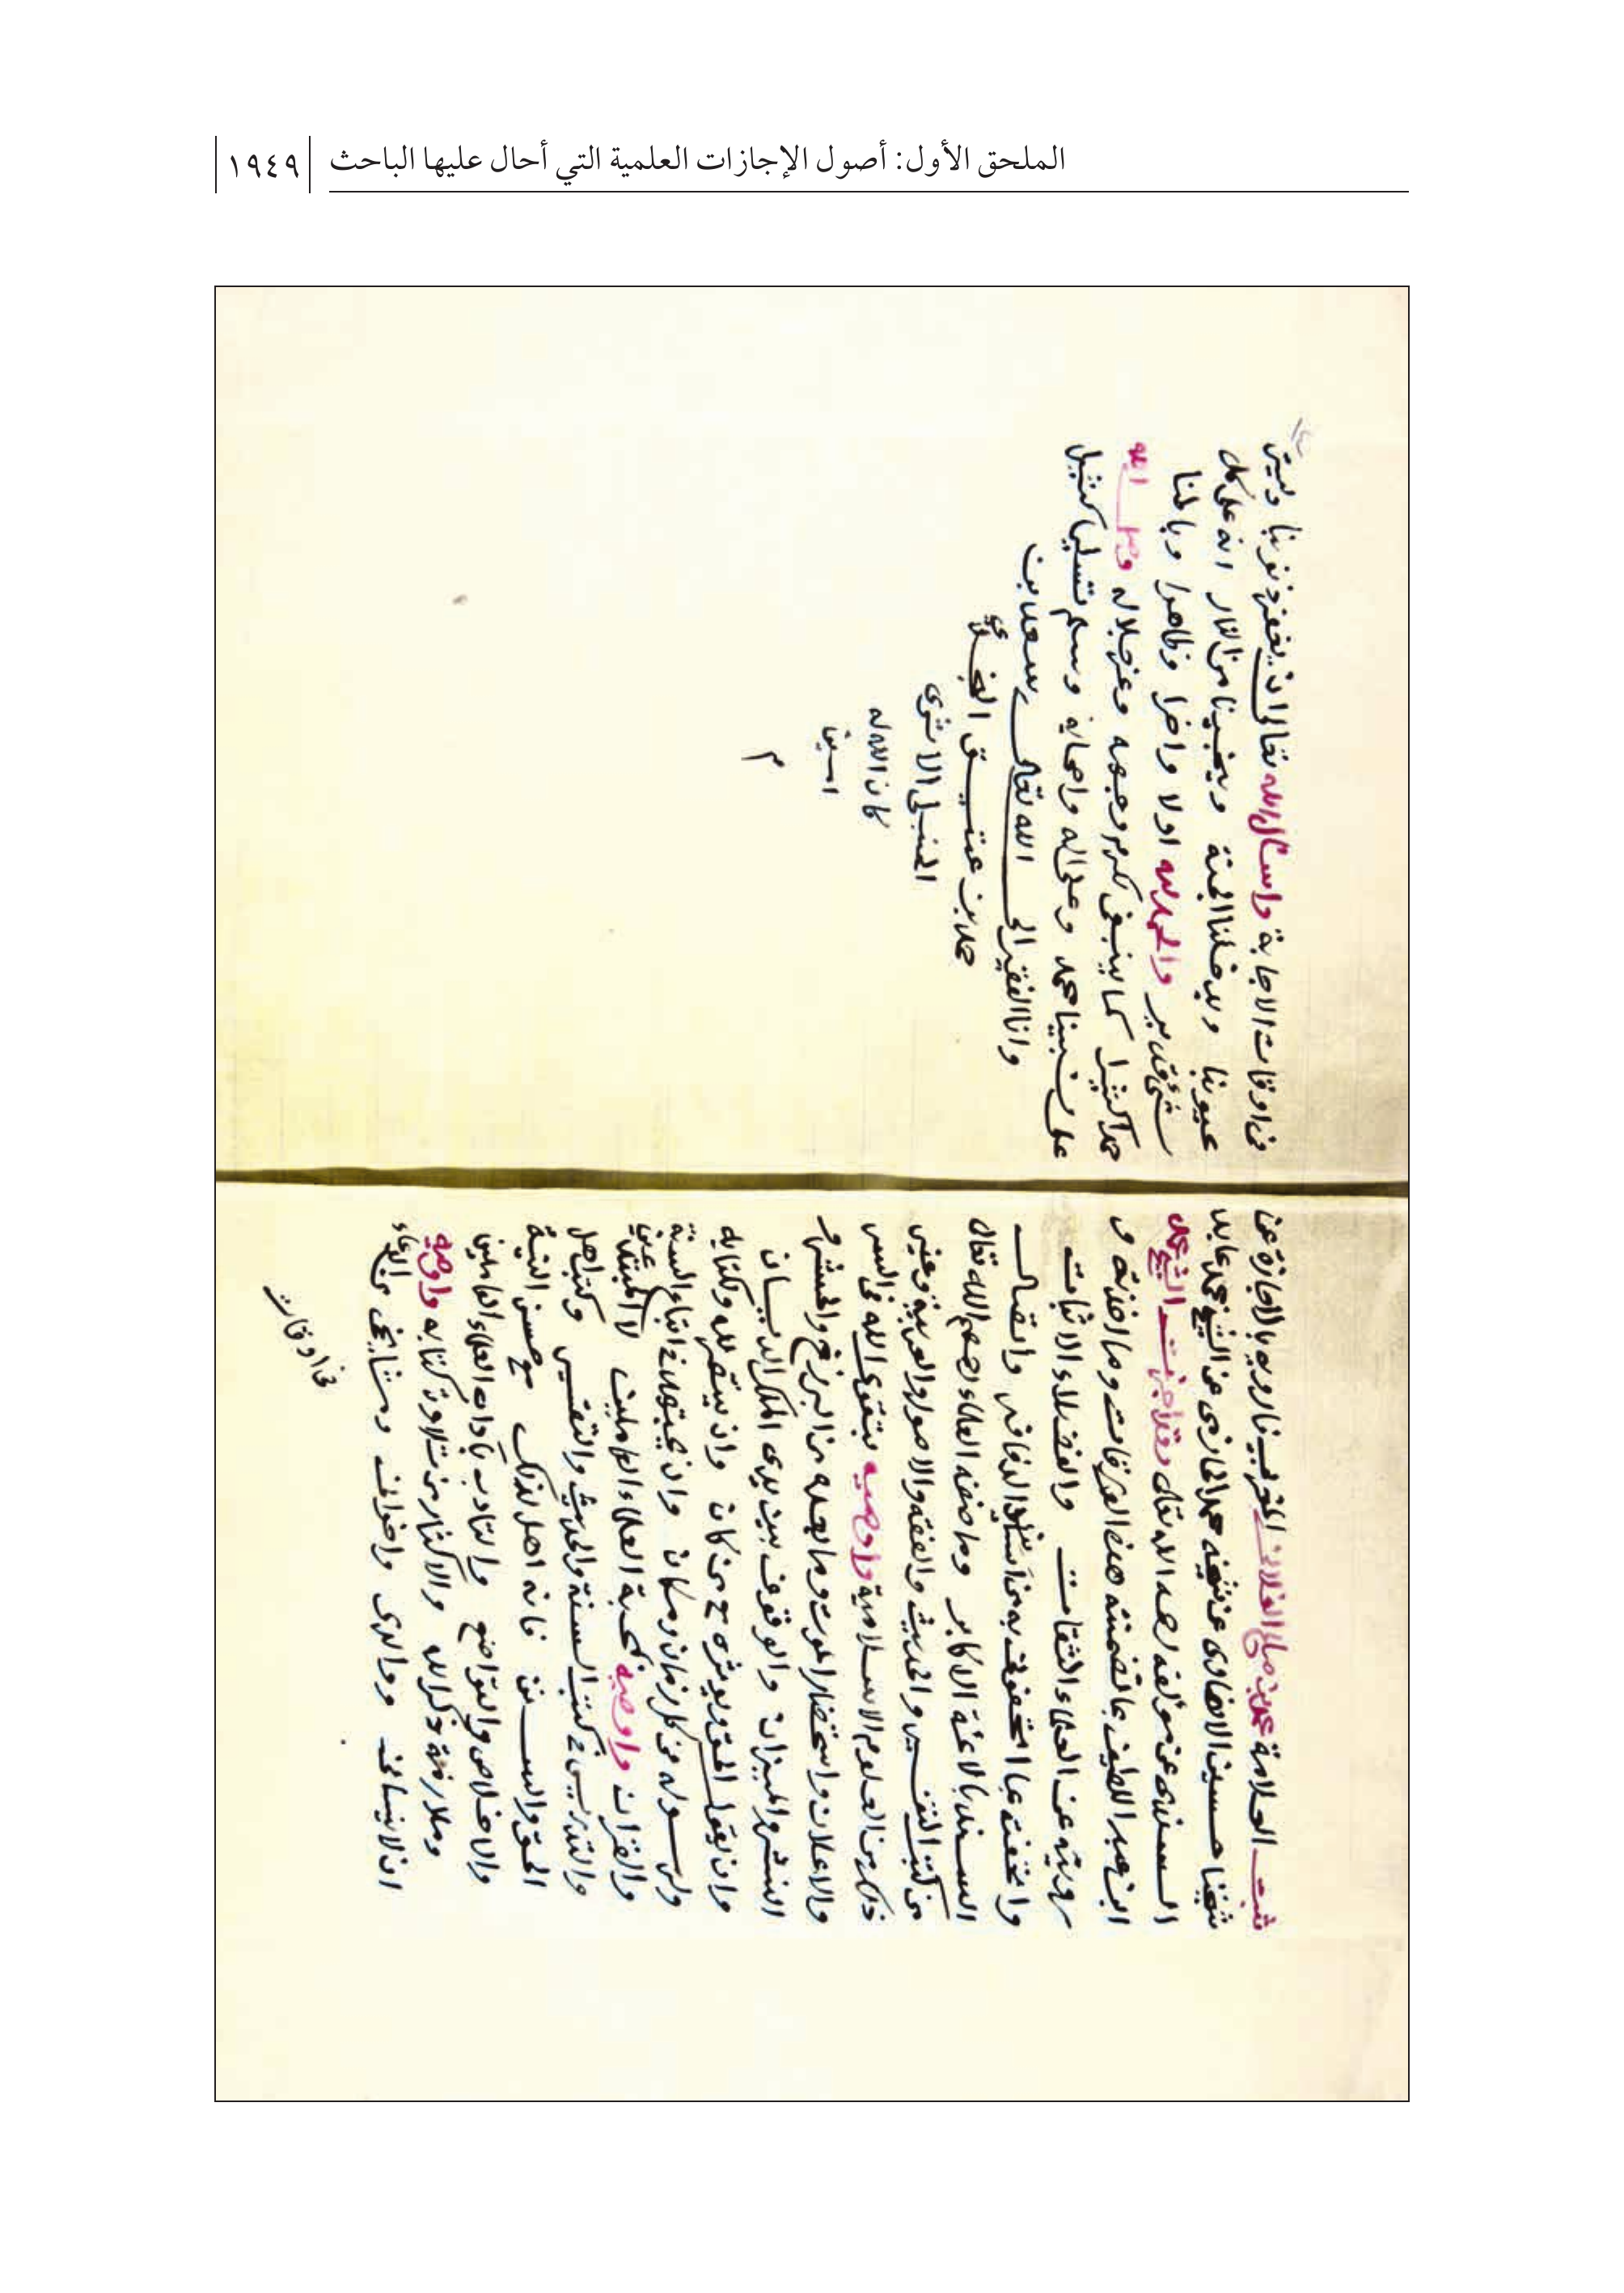 الملحق الأول: أصول الإجازات العلمية التي أحال عليها الباحث ١٩٤٩
ثبت العلامة محمد بن صالح الفلاني المغربي فإنا نرويه بالإجازة عن
شيخنا حسين الانصاري عن شيخه محمد الحازمي عن الشيخ محمد عابد
السندي عن مؤلفه رحمه الله تعالى وقد اجزت الشيخ محمد
ابن عبد اللطيف بما تضمنته هذه الورقات وما اخذته و
رويته عن العلماء الثقات والفضلاء الاثبات
واتحفت بما اتحفوني به من اسانيد الدفاتر واتصال
السند بالائمة الاكابر وما صنفه العلماء رحمهم الله تعالى
من كتب التفسير والحديث والفقه والاصول والعربية وغير
ذلك من العلوم الاسلامية واوصيه بتقوى الله في السر
والاعلان واستحضار الموت وما بعده من البرزخ والحشر و
النشر والميزان والوقوف بين يدي الملك الديان
وان يقول الحق ويؤثره مع من كان وان ينتصر لله ولكتابه
ولرسوله في كل زمان ومكان وان يجتهد في اتباع السنة
والقران واوصيه بمحبة العلماء العاملين لا المبتدعين
والتدريس في كتب السنة والحديث والتفسير وكتب اهل
الحق والسنن فانه اهل لذلك مع حسن النية
والاخلاص والتواضع والتادب بآداب العلماء العاملين
وملازمة ذكر الله والاكثار من تلاوة كتابه واوصيه
ان لا ينساني ووالدي واخواني ومشايخي من الدعاء
في اوقات
في اوقات الاجابة واسال الله تعالى ان يغفر ذنوبنا ويستر
عيوبنا ويدخلنا الجنة وينجينا من النار انه على كل
شيء قدير والحمد لله اولا واخرا وظاهرا وباطنا
حمدا كثيرا كما ينبغي لكرم وجهه وعز جلاله وصلى الله
على نبينا محمد وعلى اله واصحابه وسلم تسليما كثيرا
وانا الفقير الى الله تعالى سعد بن
حمد بن عتيق النجدي
الحنبلي الاثري
كان الله له
امين
م